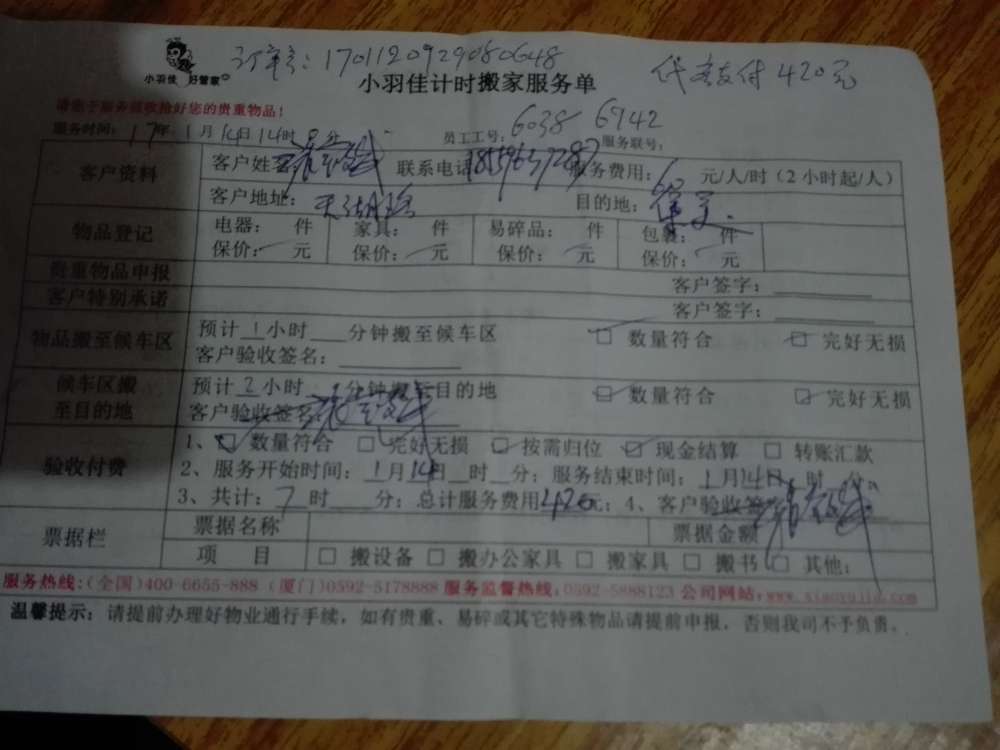 订单号：1701120929080648
代客支付 420元
小羽佳 好管家
小羽佳计时搬家服务单
请您于服务验收拾好您的贵重物品！
服务时间：17年1月14日14时0分 员工工号：6038 6942 服务联号：
客户资料 客户姓名 联系电话 服务费用：60 元/人/时（2小时起/人）
客户地址：天湖路 目的地：
物品登记 电器： 件 家具： 件 易碎品： 件 包装： 件
保价： 元 保价： 元 保价： 元 保价： 元
贵重物品申报 客户签字：
客户特别承诺 客户签字：
物品搬至候车区 预计1小时 分钟搬至候车区 数量符合 完好无损
客户验收签名：
候车区搬至目的地 预计2小时 分钟搬至目的地 数量符合 完好无损
客户验收签名
验收付费 1、 数量符合 完好无损 按需归位 现金结算 转账汇款
2、服务开始时间：1月14日 时 分；服务结束时间：1月14日 时 分
3、共计：7时 分；总计服务费用420元；4、客户验收签
票据栏 票据名称 票据金额
项 目 搬设备 搬办公家具 搬家具 搬书 其他：
服务热线：(全国)400-6655-888 (厦门)0592-5178888 服务监督热线：0592-5888123 公司网站：www.xiaoyujia.com
温馨提示：请提前办理好物业通行手续，如有贵重、易碎或其它特殊物品请提前申报，否则我司不予负责。